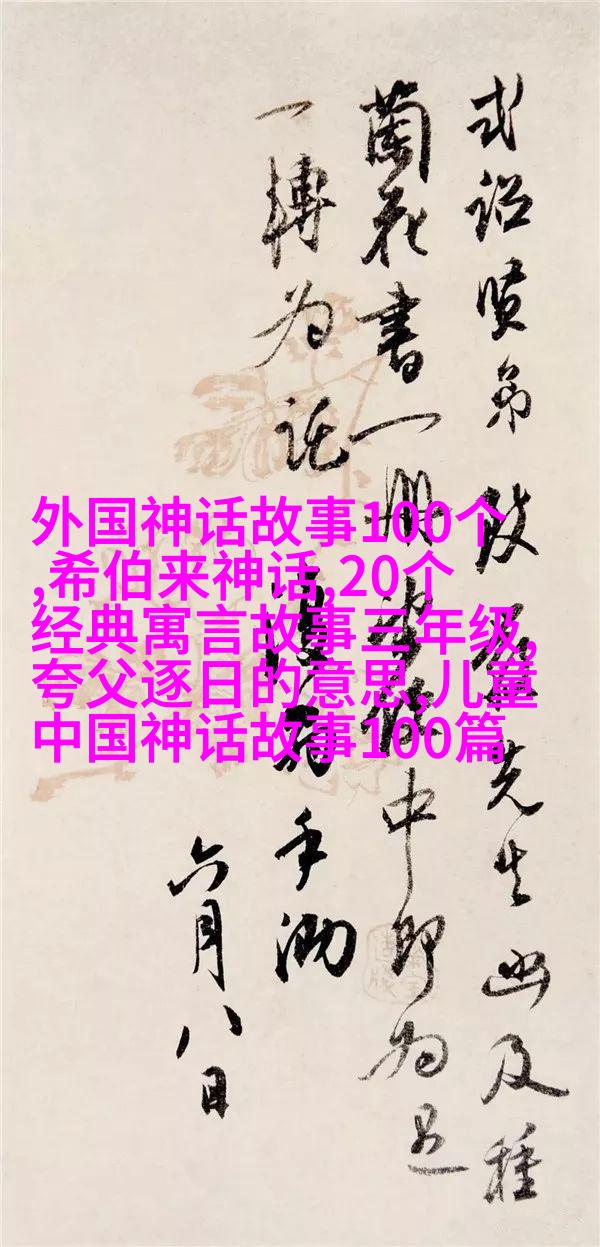 式詔賢弟 先生函及種
蘭花書一册 中即为足
一轉为託 手泐
六月八日
外国神话故事100个
,希伯来神话,20个
经典寓言故事三年级,
夸父逐日的意思,儿童
中国神话故事100篇